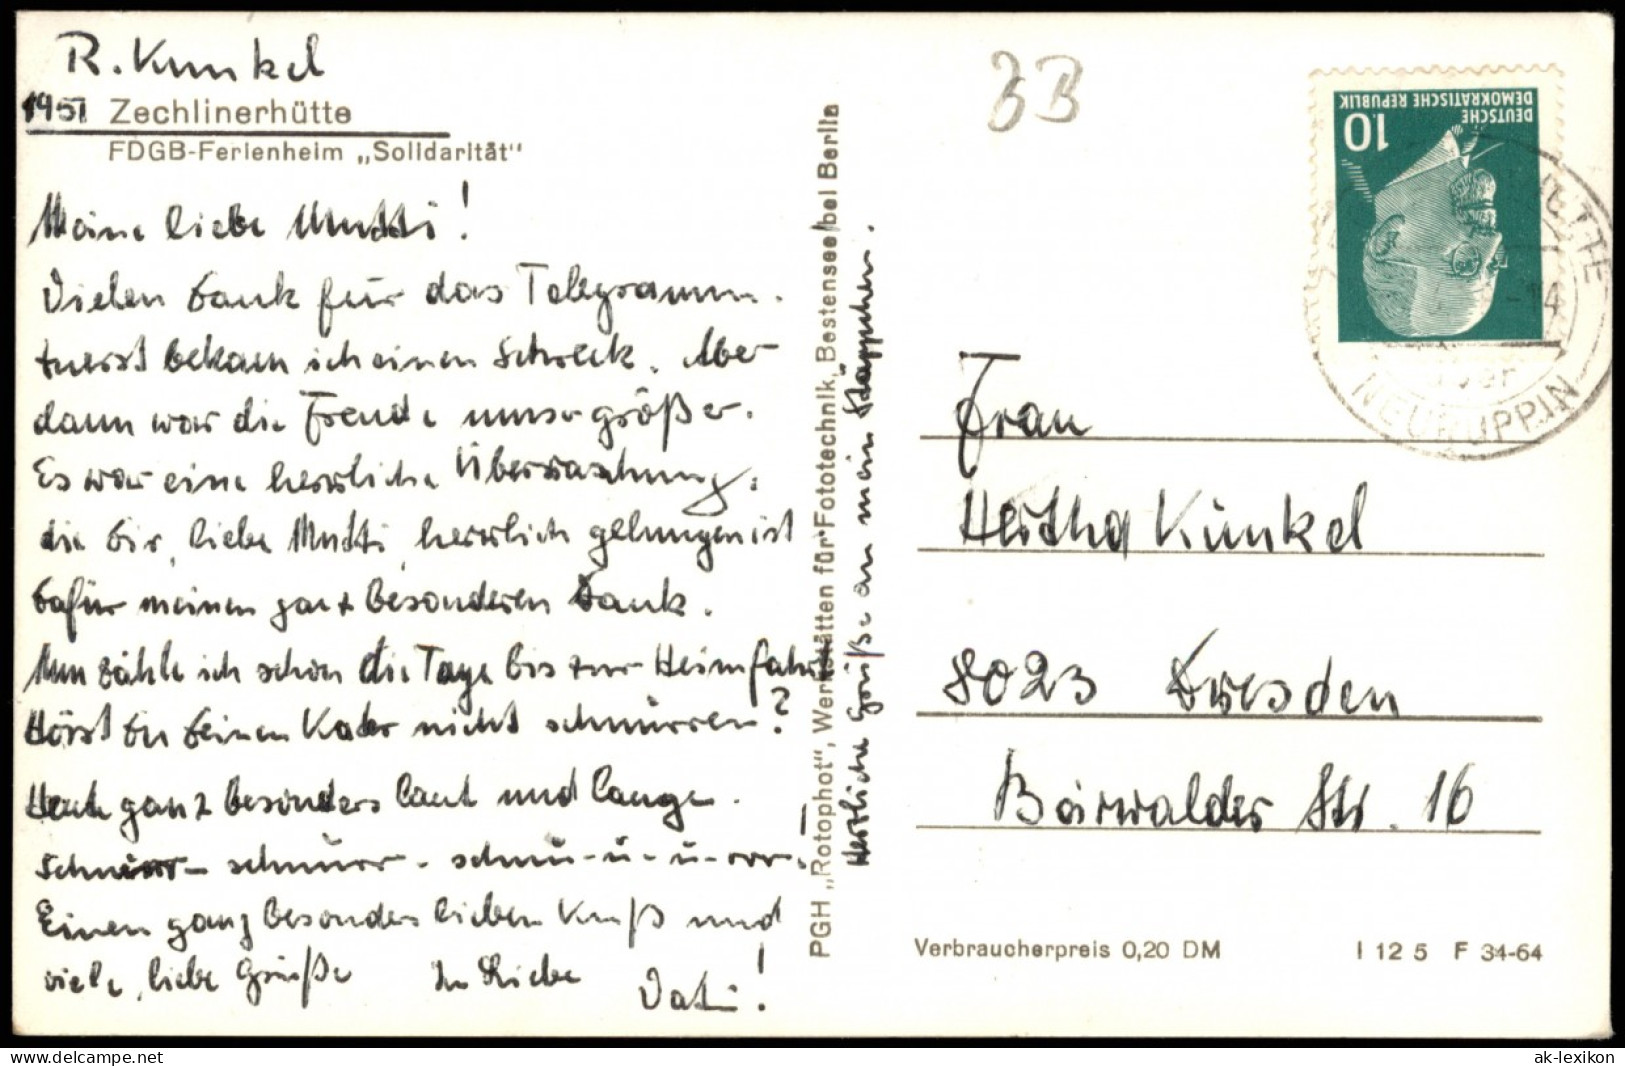 R. Kunkel
1951 Zechlinerhütte
FDGB-Ferienheim „Solidarität"
Meine liebe Mutti!
Vielen Dank für das Telegramm.
Zuerst bekam ich einen Schreck. Aber
dann war die Freude umso größer.
Es war eine herrliche Überraschung,
die Dir, liebe Mutti, herrlich gelungen ist
Dafür meinen ganz besonderen Dank.
Nun zähle ich schon die Tage bis zur Heimfahrt
Hörst Du Deinen Kater nicht schnurren?
Heute ganz besonders laut und lange.
Schnurr - schnurr - schnu-u-u-rrr!
Einen ganz besonders lieben Kuß und
viele, liebe Grüße In Liebe Vati!
PGH „Rotophot", Werkstätten für Fototechnik, Bestensee bei Berlin
Herzliche Grüße an mein Käppchen.
33
DEUTSCHE
DEMOKRATISCHE REPUBLIK
10
-14
über
NEURUPPIN
Frau
Hertha Kunkel
8023 Dresden
Bärwalder Str. 16
Verbraucherpreis 0,20 DM
I 12 5 F 34-64
ak-lexikon.com